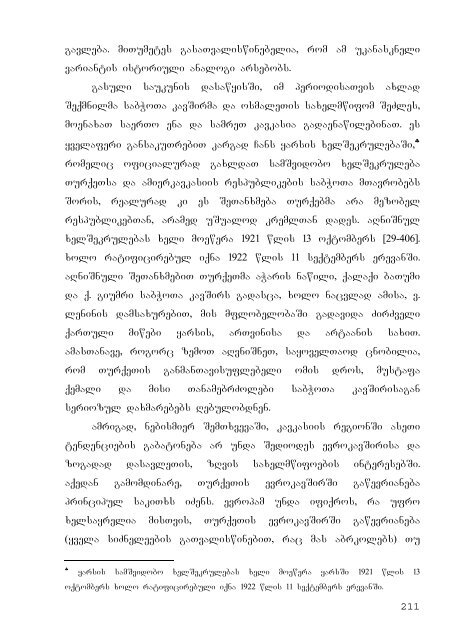 გავლება. მითუმეტეს გასათვალისწინებელია, რომ ამ უკანასკნელი
ვარიანტის ისტორიული ანალოგი არსებობს.
გასული საუკუნის დასაწყისში, იმ პერიოდისათვის ახლად
შექმნილმა საბჭოთა კავშირმა და ოსმალეთის სახელმწიფომ შეძლეს,
მოენახათ საერთო ენა და სამხრეთ კავკასია გადაენაწილებინათ. ეს
ყველაფერი განსაკუთრებით კარგად ჩანს ყარსის ხელშეკრულებაში,♣
რომელიც ოფიციალურად გახლდათ სამშვიდობო ხელშეკრულება
თურქეთსა და ამიერკავკასიის რესპუბლიკების საბჭოთა მთავრობებს
შორის, რეალურად კი ეს შეთანხმება თურქებმა არა მეზობელ
რესპუბლიკებთან, არამედ უშუალოდ კრემლთან დადეს. აღნიშნულ
ხელშეკრულებას ხელი მოეწერა 1921 წლის 13 ოქტომბერს [29-406].
ხოლო რატიფიცირებულ იქნა 1922 წლის 11 სექტემბერს ერევანში.
აღნიშნული შეთანხმებით თურქეთმა აჭარის ნაწილი, ქალაქი ბათუმი
და ქ. გიუმრი საბჭოთა კავშირს გადასცა, ხოლო ნაცვლად ამისა, ვ.
ლენინის დამსახურებით, მის მფლობელობაში გადავიდა ძირძველი
ქართული მიწები ყარსის, ართვინისა და არტაანის სახით.
ამასთანავე, როგორც ზემოთ აღვნიშნეთ, საყოველთაოდ ცნობილია,
რომ თურქეთის განმანთავისუფლებელი ომის დროს, მუსტაფა
ქემალი და მისი თანამებრძოლები საბჭოთა კავშირისაგან
სერიოზულ დახმარებებს ღებულობდნენ.
ამრიგად, ნებისმიერ შემთხვევაში, კავკასიის რეგიონში ასეთი
ტენდენციების გაბატონება არ უნდა შედიოდეს ევროკავშირისა და
ზოგადად დასავლეთის, ზღვის სახელმწიფოების ინტერესებში.
აქედან გამომდინარე, თურქეთის ევროკავშირში გაწევრიანება
პრინციპულ საკითხს იძენს. ევროპამ უნდა იფიქროს, რა უფრო
ხელსაყრელია მისთვის, თურქეთის ევროკავშირში გაწევრიანება
(ყველა სიძნელეების გათვალისწინებით, რაც მას აბრკოლებს) თუ
♣ ყარსის სამშვიდობო ხელშეკრულებას ხელი მოეწერა ყარსში 1921 წლის 13
ოქტომბერს ხოლო რატიფიცირებული იქნა 1922 წლის 11 სექტემბერს ერევანში.
211